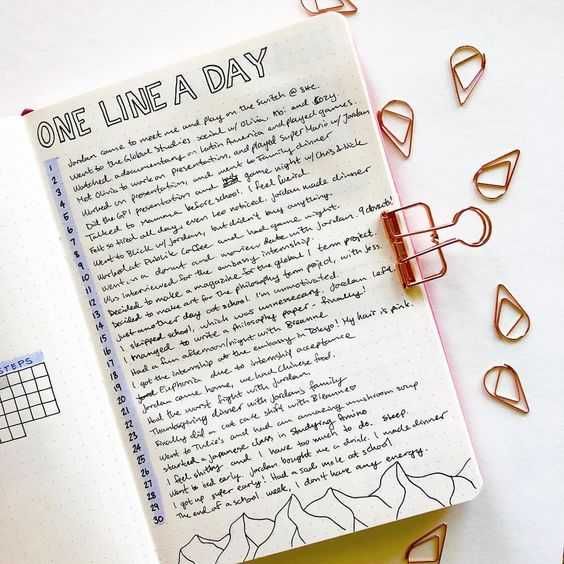 ONE LINE A DAY
1 Jordan came to meet me and play on the switch @ site.
2 Went to the Global Studies social w/ Olivia, Moi and Cozy
3 Watched a documentary on Latin America and played games.
4 Met Olivia to work on presentation, and played Super Mario w/ Jordan
5 Worked on presentation, and went to Family dinner
6 Did the GPI presentation and game night w/ Chris & Nick
7 Talked to mamma before school. I feel weird.
8 Felt so tired all day, even Leo noticed. Jordan made dinner
9 Went to Blick w/ Jordan, but didn't buy anything.
10 Worked at Public Coffee and had game night.
11 Went on a donut and movies date with Jordan
12 Was interviewed for the embassy internship.
13 Decided to make a magazine for the global 1 term project.
14 Decided to make art for the philosophy term project, with less.
15 Just another day at school. I'm unmotivated. Jordan left
16 I skipped school, which was unnecessary.
17 I managed to write a philosophy paper - finally.
18 Had a fun afternoon/night with Breanne
19 I got the internship at the embassy in Tokyo! My hair is pink.
20 Euphoria due to internship acceptance
21 Jordan came home, we had Chinese food.
22 Had the worst fight with Jordan
23 Thanksgiving dinner with Jordans family
24 Finally did a cat cafe shift with Breanne
25 Went to Julie's and had an amazing mushroom soup
26 Started a Japanese class in studying Amino
27 I feel shitty and I have too much to do. sleep.
28 Went to bed early. Jordan bought me a drink. I made dinner
29 I got up super early. Had a sad mole at school
30 The end of a school week, I don't have any energy.
STEPS